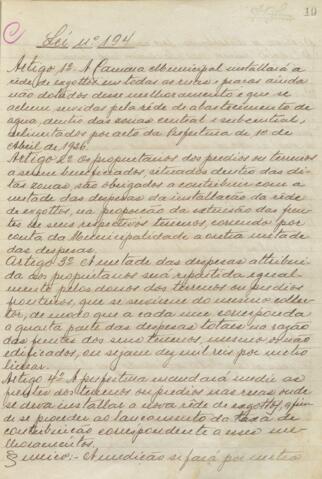 10
C
Lei nº 194
Artigo 1º A Camara Municipal installará a
rêde de exgottos em todas as ruas e praças ainda
não dotadas desse melhoramento e que se
achem servidas pela rêde de abastecimento de
agua, dentro das zonas central e subcentral,
delimitadas por acto da Prefeitura de 10 de
Abril de 1926.
Artigo 2º Os proprietarios dos predios ou terrenos
a serem beneficiados, situados dentro das di-
tas zonas, são obrigados a contribuir com a
metade das despezas da installação da rêde
de exgottos, na proporção da extensão das fren-
tes de seus respectivos terrenos, correndo por
conta da Municipalidade a outra metade
das despezas.
Artigo 3º A metade das despezas attribui-
da aos proprietarios será repartida egual-
mente pelos donos dos terrenos ou predios
fronteiros, que se servirem do mesmo collec-
tor, de modo que a cada um corresponda
a quarta parte das despezas totaes na razão
das frentes dos seus terrenos, mesmo os não
edificados, ou sejam dez mil reis por metro
linear.
Artigo 4º A prefeitura mandará medir as
frentes dos terrenos ou predios nas ruas onde
se deva installar a nova rêde de exgottos, afim
de proceder ao lançamento da taxa de
contribuição correspondente a esse me-
lhoramento.
§ unico:- A medição se fará por metro